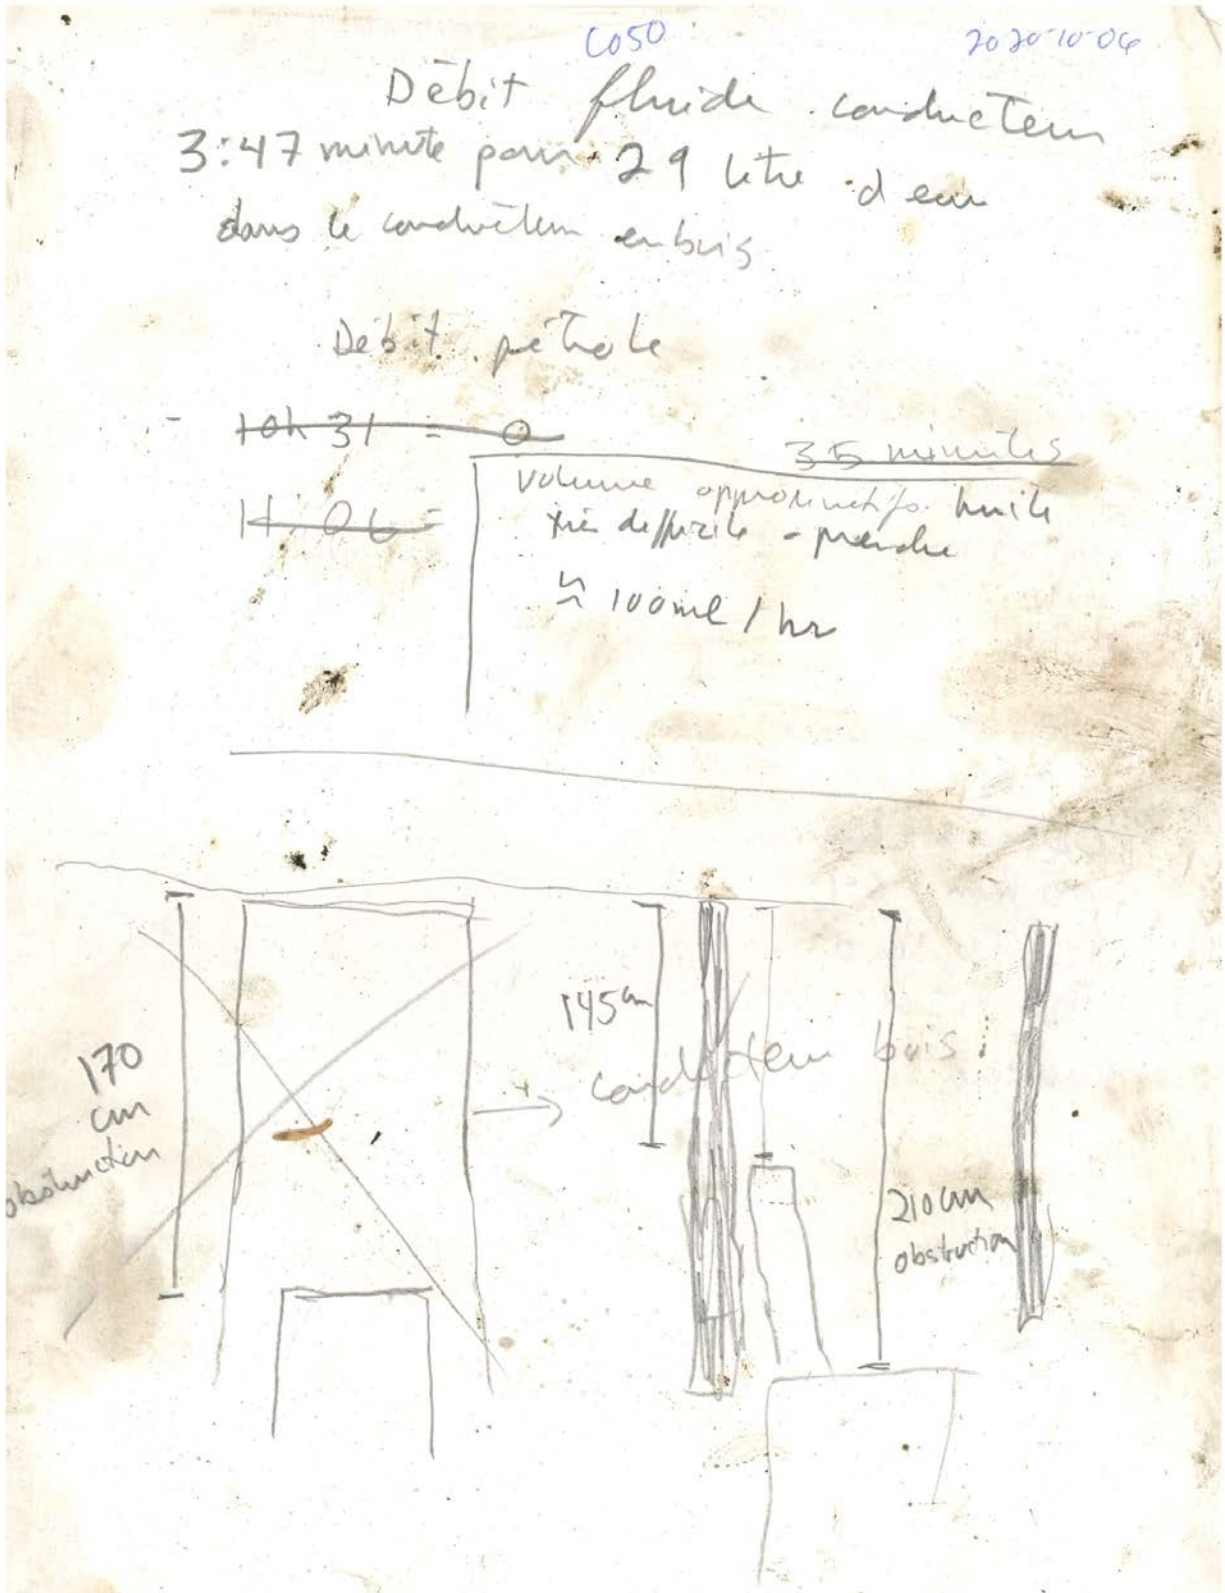 C050 2020-10-06
Débit fluide conducteur
3:47 minute pour 29 litre d'eau
dans le conducteur en bois
Débit pétrole
- 10h 31 = 0
35 minutes
11 06 =
volume approximatifs huile
très difficile a prendre
≈ 100ml / hr
170
cm
obstruction
145cm
conducteur bois
210cm
obstruction